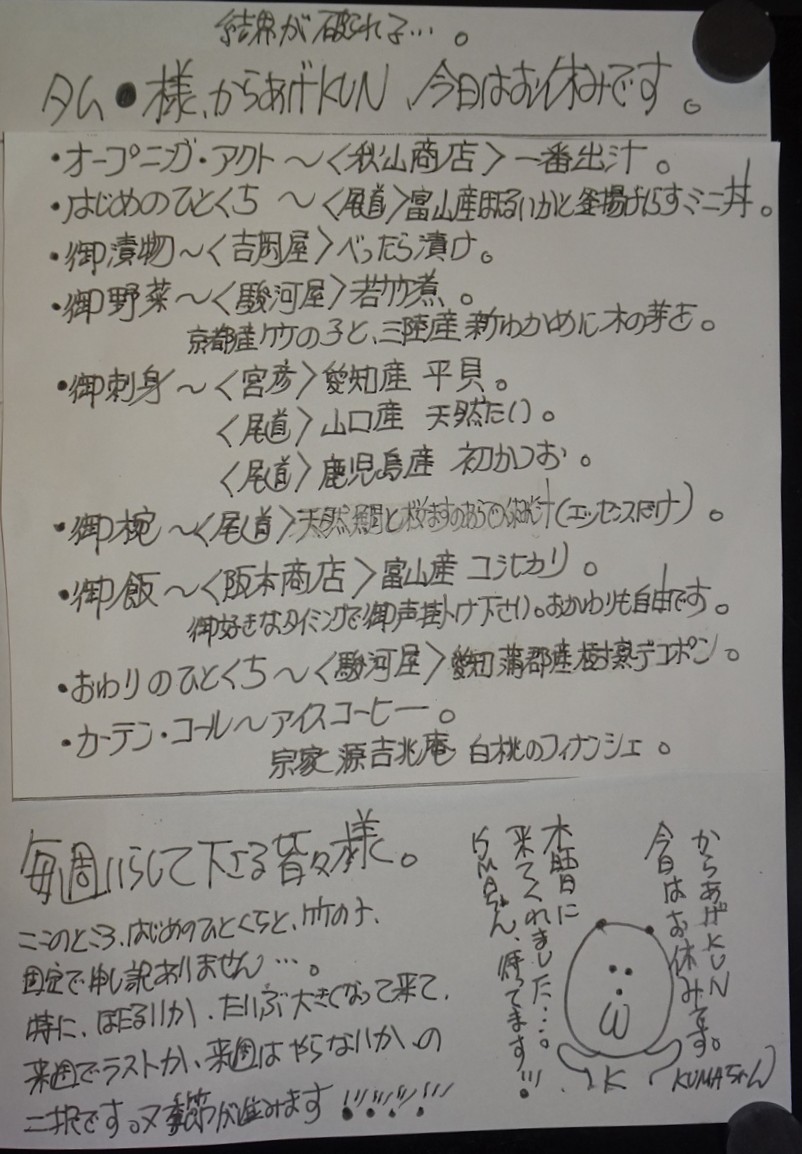 結界が破られる…。
タム●様、からあげKUN、今日はお休みです。
・オープニング・アクト〜〈秋山商店〉一番出汁。
・はじめのひとくち〜〈尾道〉富山産ほたるいかと釜揚げしらすミニ丼。
・御漬物〜〈吉岡屋〉べったら漬け。
・御野菜〜〈駿河屋〉若竹煮。
京都産竹の子と、三陸産新わかめに木の芽を。
・御刺身〜〈宮彦〉愛知産 平貝。
〈尾道〉山口産 天然たい。
〈尾道〉鹿児島産 初かつお。
・御椀〜〈尾道〉天然鯛と桜ますのあらの潮汁(エッセンスだけ)。
・御飯〜〈阪本商店〉富山産 コシヒカリ。
御好きなタイミングで御声掛け下さい。おかわりも自由です。
・おわりのひとくち〜〈駿河屋〉愛知蒲郡産樹熟デコポン。
・カーテン・コール〜アイスコーヒー。
宗家 源吉兆庵 白桃のフィナンシェ。
毎週いらして下さる皆々様。
ここのところ、はじめのひとくちと、竹の子、
固定で申し訳ありません…。
特に、ほたるいか、だいぶ大きくなって来て、
来週でラストか、来週はやらないか、の
二択です。又季節が進みます!!!!!
からあげKUN
今日はお休みです。
木曜日に
来てくれました…。
KUMAちゃん、待ってます!!!
K
KUMAちゃん